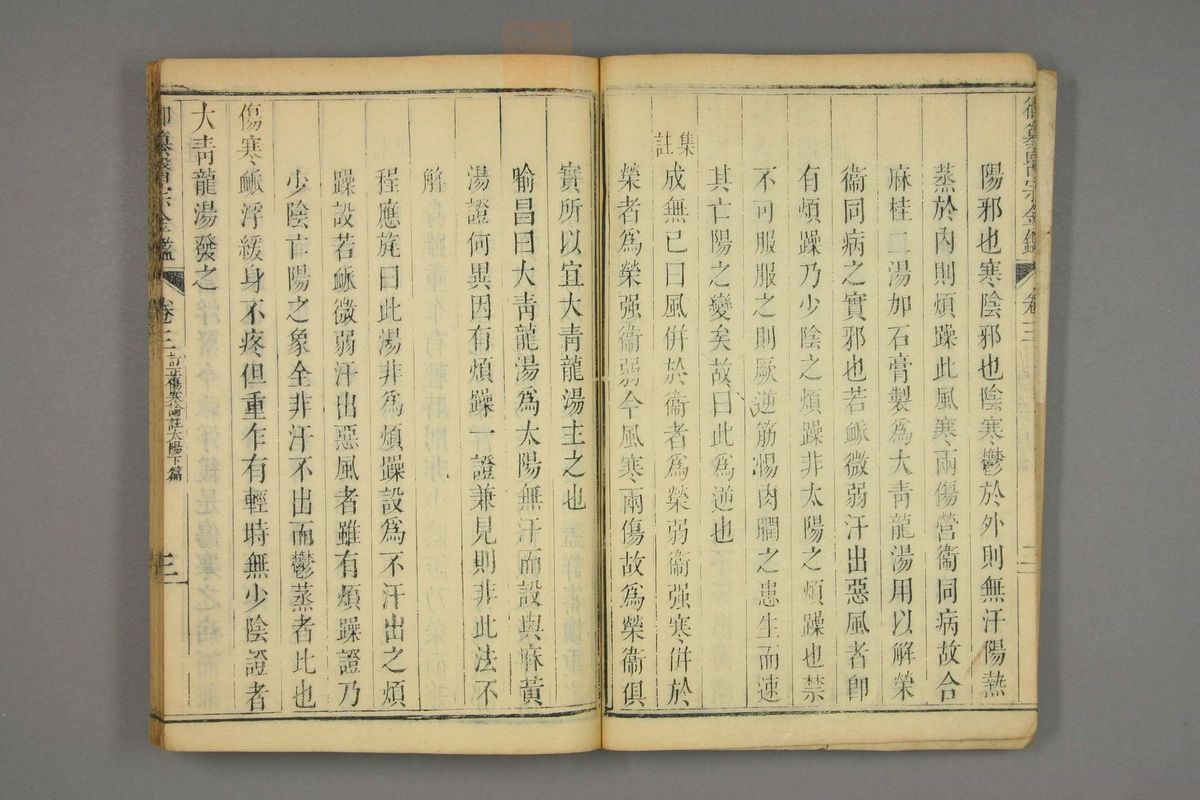 御纂醫宗金鑑 卷三 二
陽邪也寒陰邪也陰寒鬱於外則無汗陽熱
蒸於內則煩躁此風寒兩傷營衞同病故合
麻桂二湯加石膏製爲大靑龍湯用以解榮
衞同病之實邪也若脈微弱汗出惡風者卽
有煩躁乃少陰之煩躁非太陽之煩躁也禁
不可服服之則厥逆筋惕肉瞤之患生而速
其亡陽之變矣故曰此爲逆也
集註
成無已曰風併於衞者爲榮弱衞强寒併於
榮者爲榮强衞弱今風寒兩傷故爲榮衞俱
實所以宜大靑龍湯主之也
喻昌曰大靑龍湯爲太陽無汗而設與麻黃
湯證何異因有煩躁一證兼見則非此法不
解
程應旄曰此湯非爲煩躁設爲不汗出之煩
躁設若脈微弱汗出惡風者雖有煩躁證乃
少陰亡陽之象全非汗不出而鬱蒸者比也
傷寒脈浮緩身不疼但重乍有輕時無少陰證者
大靑龍湯發之
御纂醫宗金鑑 卷三 訂正傷寒論註太陽下篇 三